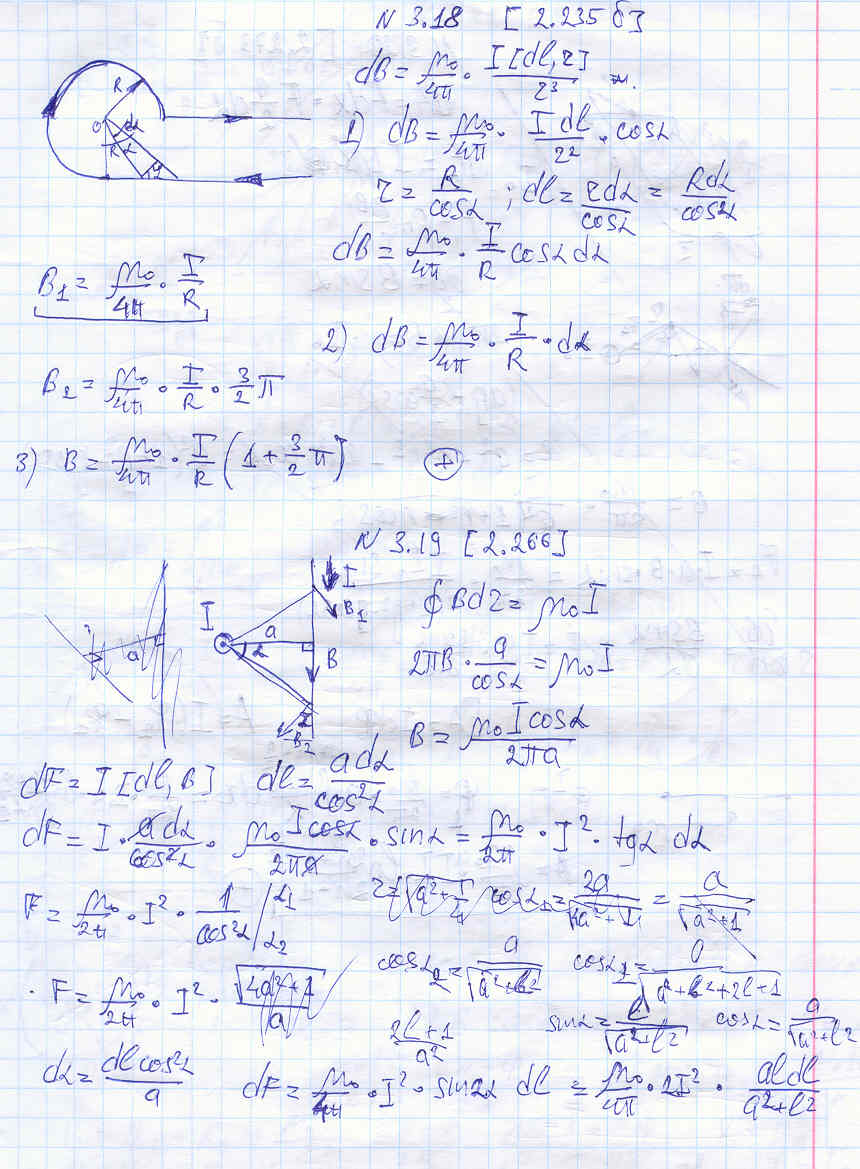 N 3.18 [2.235 б]
dB = μ₀/4π · I[dl, r]/r³
R
O
dα
R
α
φ
1) dB = μ₀/4π · I dl/r² · cosα
r = R/cosα ; dl = r dα/cosα = R dα/cos²α
dB = μ₀/4π · I/R cosα dα
B₁ = μ₀/4π · I/R
2) dB = μ₀/4π · I/R · dα
B₂ = μ₀/4π · I/R · 3/2 π
3) B = μ₀/4π · I/R (1 + 3/2 π)
+
N 3.19 [2.266]
I
I
B₁
a
α
B
B₂
a
∮ B dr = μ₀ I
2πB · a/cosα = μ₀ I
B = μ₀ I cosα/2πa
dF = I [dl, B] dl = a dα/cos²α
dF = I · a dα/cos²α · μ₀ I cosα/2πa · sinα = μ₀/2π · I² · tgα dα
F = μ₀/2π · I² · 1/cos²α |
cosα₂ = a/√(a²+l²)
F = μ₀/2π · I² · √(4a²+1)/a
2l+1/a²
sinα = l/√(a²+l²) cosα = a/√(a²+l²)
dα = dl cos²α/a dF = μ₀/4π · I² · sin2α dl = μ₀/4π · 2I² · al dl/a²+l²